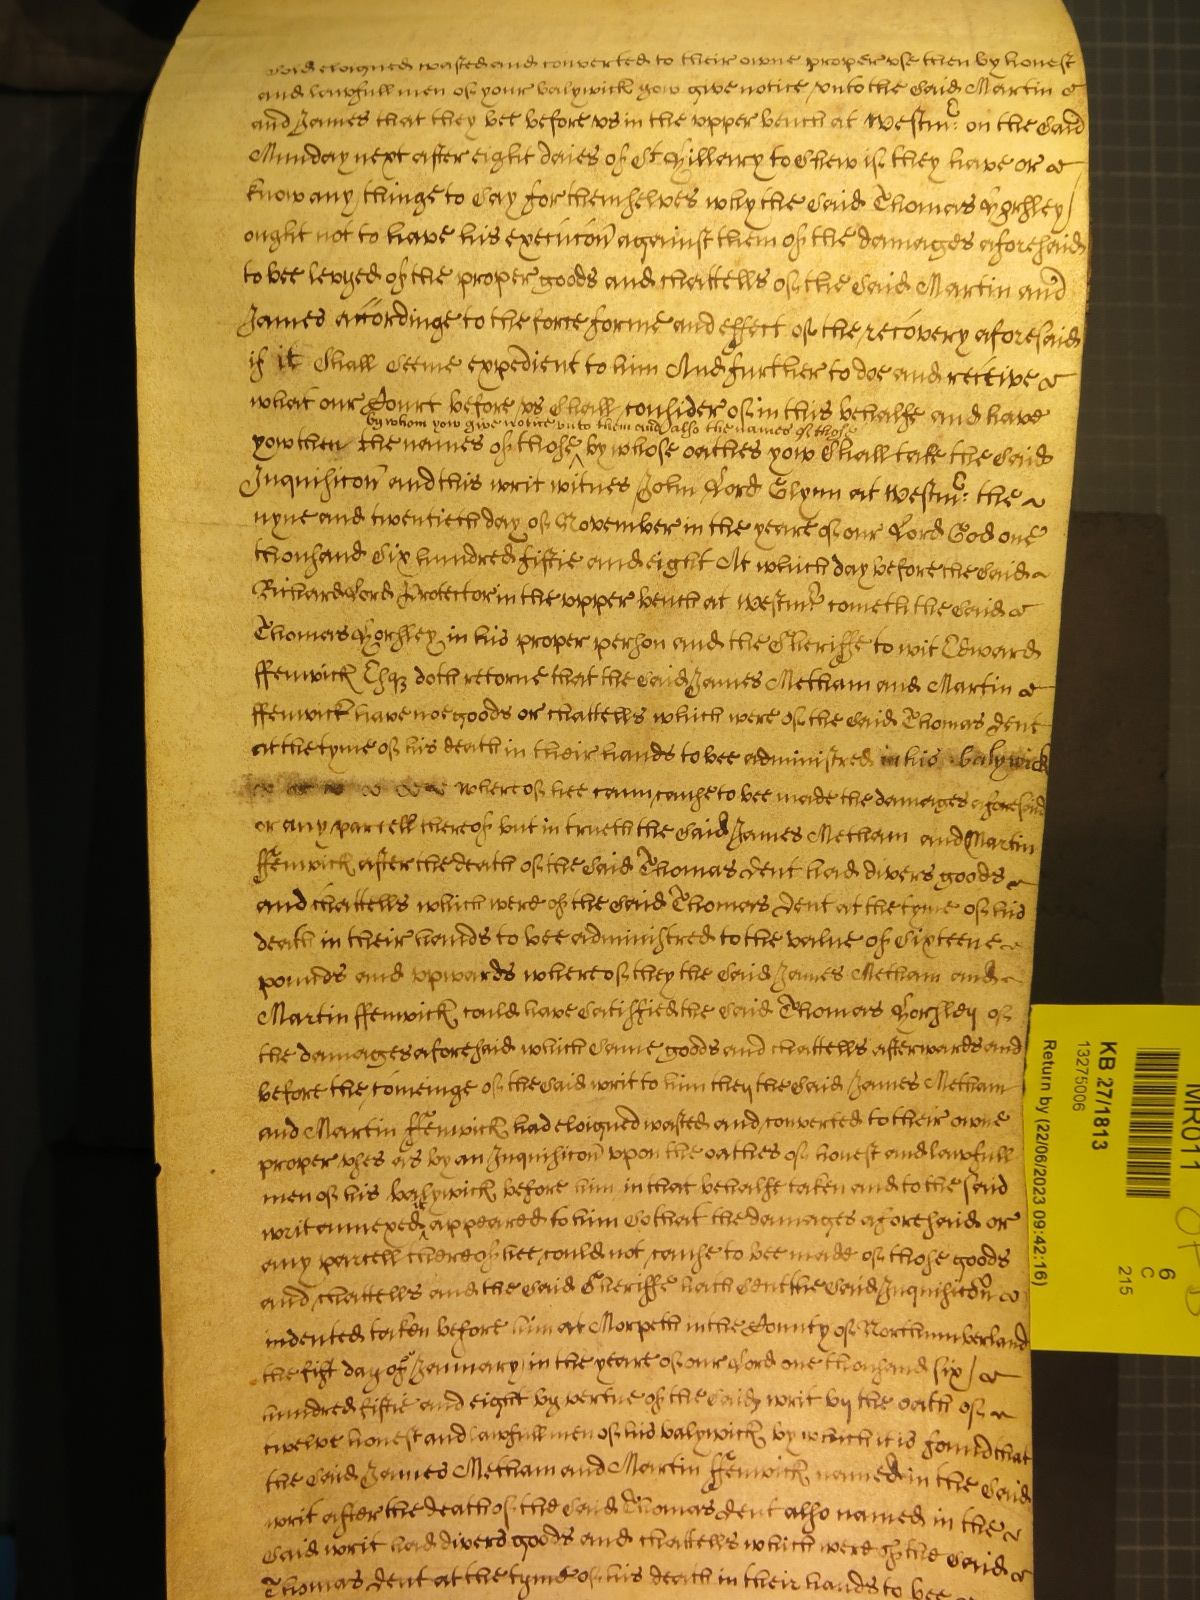 sold eloigned wasted and converted to their owne proper use then by honest
and lawfull men of your balywick yow give notice unto the said Martin &
and James that they bee before us in the upper bench at Westmr: on the said
Munday next after eight daies of St. Hillary to shew if they have or &
know any thinge to say for themselves why the said Thomas Horsley
ought not to have his execucon against them of the damages aforesaid
to bee levyed of the proper goods and chattells of the said Martin and
James accordinge to the force forme and effect of the recovery aforesaid
if it shall seeme expedient to him And further to doe and receive &
what our Court before us shall consider of in this behalfe and have
by whom yow give notice unto them and also the names of those
yow then the names of those by whose oathes yow shall take the said
Inquisicon and this writ witnes John Lord Glynn at Westmr: the
nyne and twentieth day of November in the yeare of our Lord God one
thousand six hundred fiftie and eight At which day before the said
Richard Lord Protector in the upper bench at Westmr cometh the said &
Thomas Horsley in his proper person and the Sheriffe to wit Edward
ffenwick Esqz doth retorne that the said James Metham and Martin &
ffenwick have noe goods or chattells which were of the said Thomas Dent
at the tyme of his death in their hands to bee administred in his balywick
whereof hee cann cause to bee made the damages aforesaid
or any parcell thereof but in trueth the said James Metham and Martin
ffenwick after the death of the said Thomas Dent had divers goods
and chattells which were of the said Thomas Dent at the tyme of his
death in their hands to bee administred to the value of sixteene
pounds and upwards whereof they the said James Metham and
Martin ffenwick could have satisfied the said Thomas Horsley of
the damages aforesaid which same goods and chattells afterwards and
before the comeinge of the said writ to him they the said James Metham
and Martin ffenwick had eloigned wasted and converted to their owne
proper uses as by an Inquisicon upon the oathes of honest and lawfull
men of his balywick before him in that behalfe taken and to the said
writ annexed it appeared to him so that the damages aforesaid or
any parcell thereof hee could not cause to bee made of those goods
and chattells and the said Sheriffe hath sent the said Inquisicon
indented taken before him at Morpeth in the County of Northumberland
the fift day of January in the yeare of our Lord one thousand six &
hundred fiftie and eight by vertue of the said writ by the oath of
twelve honest and lawfull men of his balywick by which it is found that
the said James Metham and Martin ffenwick named in the said
writ after the death of the said Thomas Dent also named in the
said writ had divers goods and chattells which were of the said &
Thomas Dent at the tyme of his death in their hands to bee
MR011
6
C
215
KB 27/1813
13275006
Return by (22/06/2023 09:42:16)